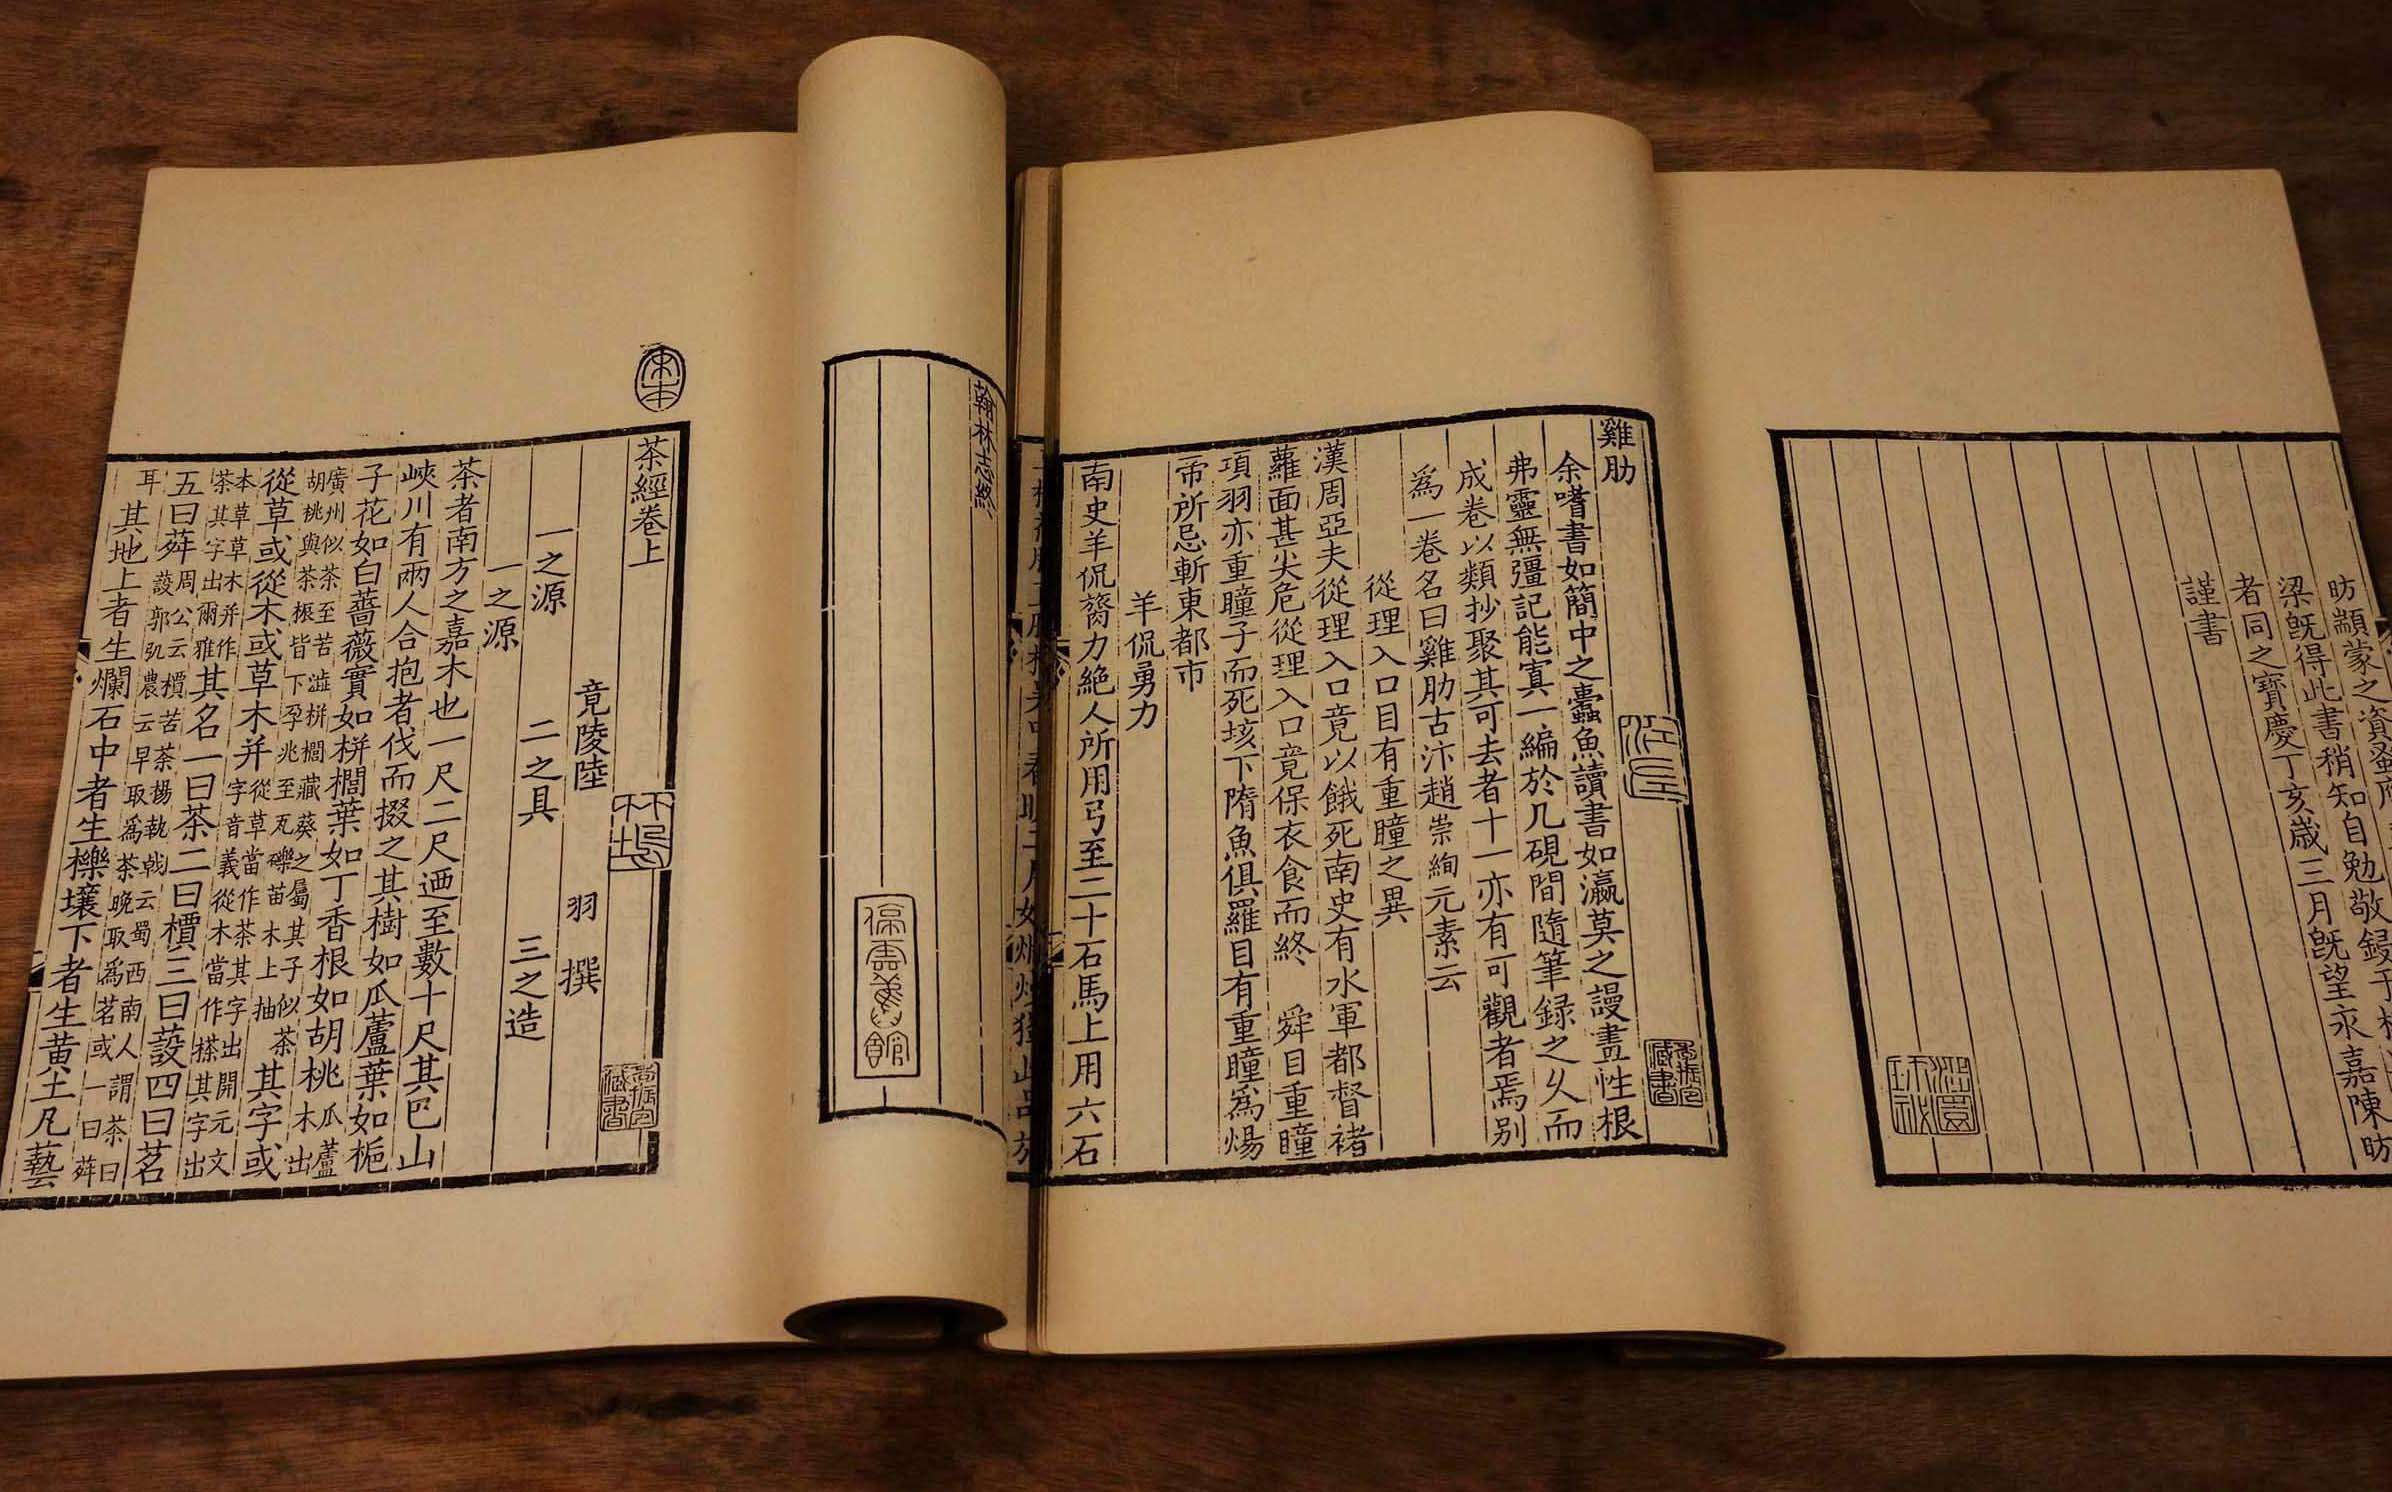 昉顓蒙之資蚤
梁旣得此書稍知自勉敬鋟于
者同之寶慶丁亥歲三月旣望永嘉陳昉
謹書
雞肋
余嗜書如簡中之蠹魚讀書如瀛莫之謾畫性根
弗靈無彊記能寘一編於几硯間隨筆録之乆而
成卷以類抄聚其可去者十一亦有可觀者焉别
爲一卷名曰雞肋古汴趙崇絢元素云
從理入口目有重瞳之異
漢周亞夫從理入口竟以餓死南史有水軍都督褚
蘿面甚尖危從理入口竟保衣食而終　舜目重瞳
項羽亦重瞳子而死垓下隋魚俱羅目有重瞳爲煬
帝所忌斬東都市
羊侃勇力
南史羊侃膂力絶人所用弓至二十石馬上用六石
翰林志終
茶經卷上
竟陵陸　羽　撰
一之源　二之具　三之造
一之源
茶者南方之嘉木也一尺二尺迺至數十尺其巴山
峽川有兩人合抱者伐而掇之其樹如瓜蘆葉如梔
子花如白薔薇實如栟櫚葉如丁香根如胡桃瓜蘆木出
廣州似茶至苦澁栟櫚蒲葵之屬其子似茶胡桃與茶根皆下孕兆至瓦礫苗木上抽其字或
從草或從木或草木并從草當作茶其字出開元文字音義從木當作㯏其字出
本草草木并作荼其字出爾雅其名一曰茶二曰檟三曰蔎四曰茗
五曰荈周公云檟苦荼楊執戟云蜀西南人謂茶曰蔎郭弘農云早取爲荼晚取爲茗或一曰荈
耳其地上者生爛石中者生櫟壤下者生黄土凡藝